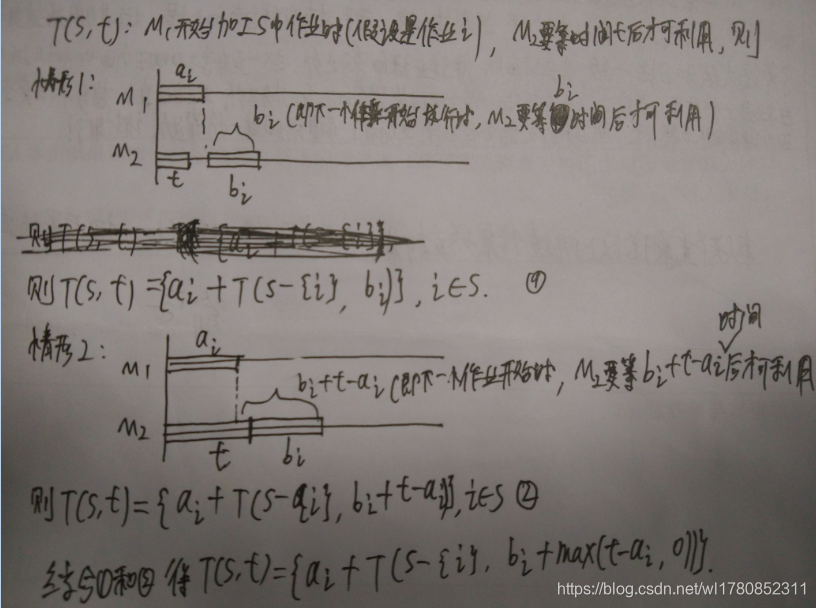 T(S,t): M₁开始加工S中作业时(假设是作业i), M₂要等时间t后才可利用,则
情形1:
aᵢ
M₁
bᵢ
bᵢ(即下一个作业开始执行时, M₂要等 时间后才可利用)
M₂
t
bᵢ
则T(S,t)={aᵢ+T(S-{i}, bᵢ)}, i∈S. ①
时间
情形2:
aᵢ
M₁
bᵢ+t-aᵢ(即下一个作业开始时, M₂要等bᵢ+t-aᵢ后才可利用
M₂
t
bᵢ
则T(S,t)={aᵢ+T(S-{i}, bᵢ+t-aᵢ)}, i∈S ②
结合①和②得T(S,t)={aᵢ+T(S-{i}, bᵢ+max(t-aᵢ,0))}.
https://blog.csdn.net/wl1780852311